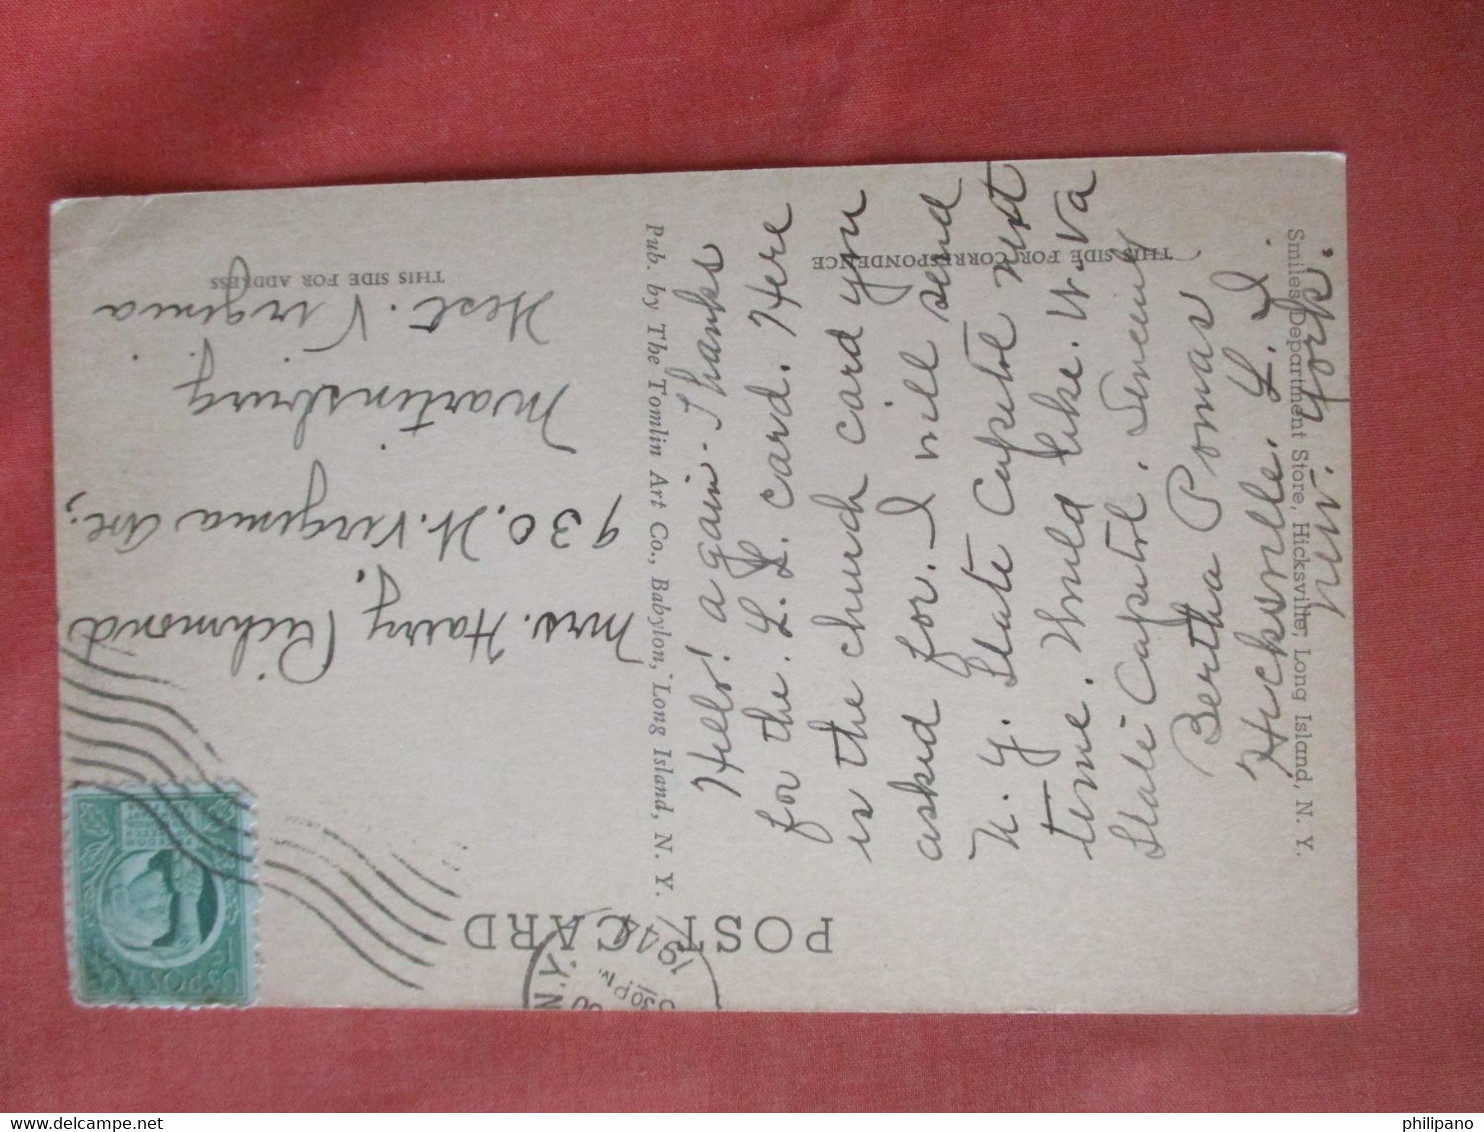 POST CARD
THIS SIDE FOR CORRESPONDENCE
THIS SIDE FOR ADDRESS
N.Y.
30 PM
194
U.S. POSTAGE
Mrs. Harry Richmond
930. W. Virginia Ave,
Martinsburg
West. Virginia
Pub. by The Tomlin Art Co., Babylon, Long Island, N. Y.
Hello! again - Thanks
for the L. I. card. Here
is the church card you
asked for. I will send
N. Y. State Capitol next
time. Would like. W. Va
State Capitol. Sincerely
Bertha Pomas
Hicksville. L. I
New York.
Smiles Department Store, Hicksville, Long Island, N. Y.
philipano